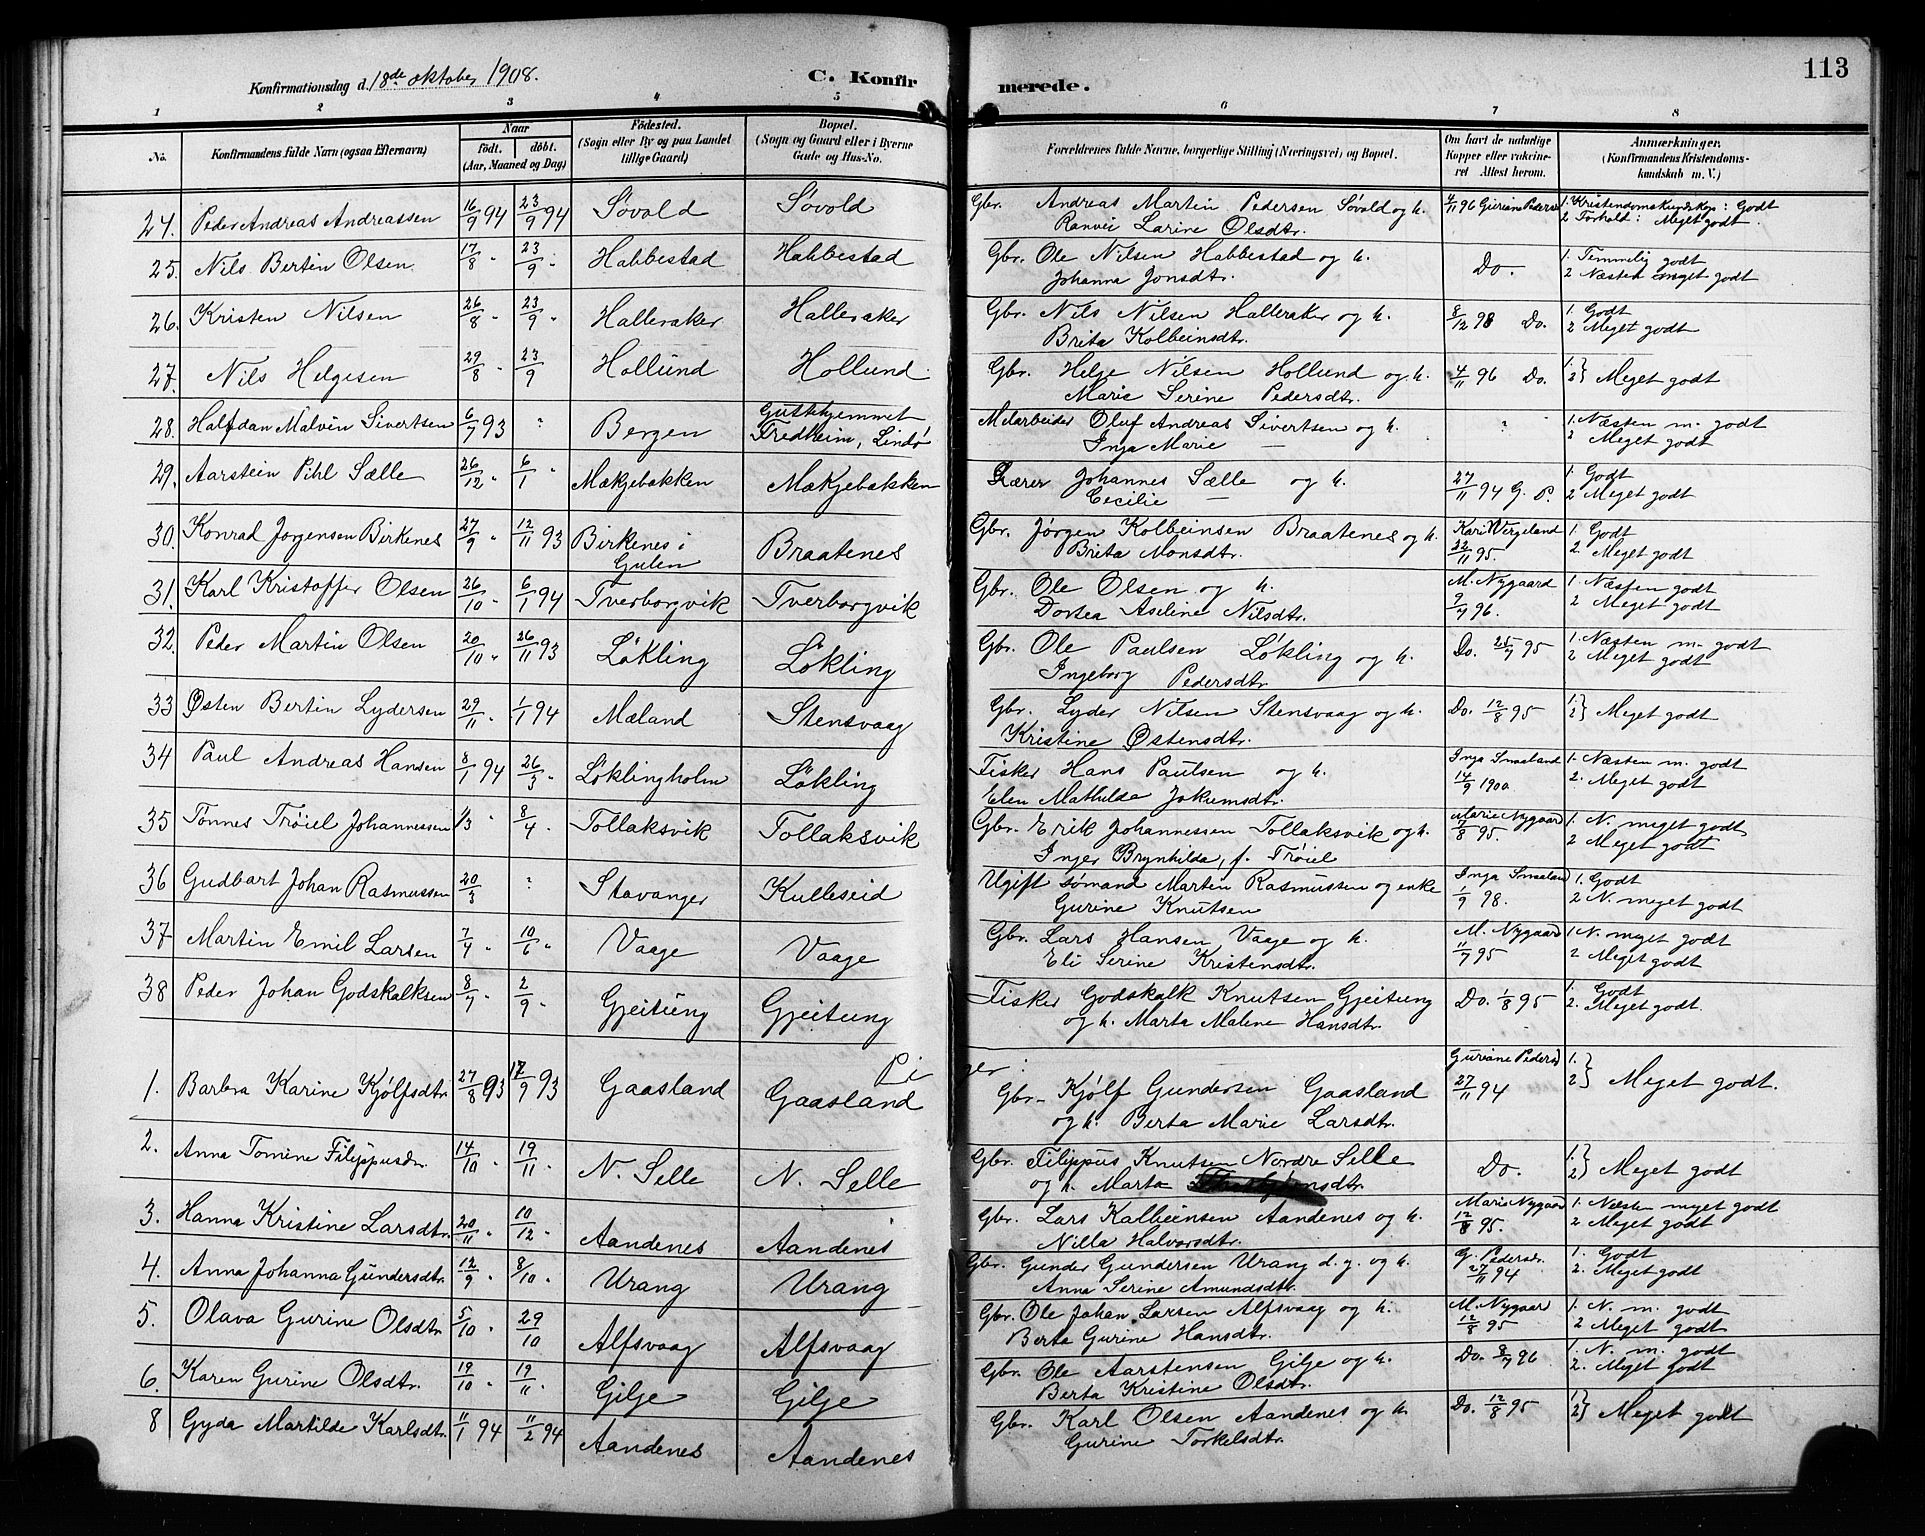 113
Konfirmationsdag d. 18de oktober 1908.
C. Konfirmerede.
1 2 3 4 5 6 7 8
No.
Konfirmandens fulde Navn (ogsaa Efternavn)
Naar
født. døbt.
(Aar, Maaned og Dag)
Fødested.
(Sogn eller By og paa Landet
tillige Gaard)
Bopæl.
(Sogn og Gaard eller i Byerne
Gade og Hus-No.
Forældrenes fulde Navne, borgerlige Stilling (Næringsvei) og Bopæl.
Om havt de naturlige
Kopper eller vakcine-
ret Attest herom.
Anmærkninger.
(Konfirmandens Kristendoms-
kundskab m. V.)
24. Peder Andreas Andreassen 16/9 94 23/9 94 Søvold Søvold Gbr. Andreas Martin Pedersen Søvold og h. 4/11 96 Guriane Peders 1. Kristendomskundskap: Godt
Ranvei Larine Olsdtr. 2. Forhold: Meget godt.
25. Nils Bertin Olsen 17/8 " 23/9 " Habbestad Habbestad Gbr. Ole Nilsen Habbestad og h. Do. 1. Temmelig godt
Johanna Jonsdtr. 2 Næsten meget godt
26. Kristen Nilsen 26/8 " 23/9 " Halleraker Halleraker Gbr. Nils Nilsen Halleraker og h. 8/12 98 Do. 1. Godt
Brita Kolbeinsdtr. 2 Meget godt
27. Nils Helgesen 29/8 " 23/9 Hollund Hollund Gbr. Helge Nilsen Hollund og h. 4/11 96 Do. 1. 2} Meget godt
Marie Serine Pedersdtr.
28. Halfdan Malvin Sivertsen 6/7 93 " Bergen Guttehjemmet Oluf Andreas Sivertsen og h. " 1. Næsten m. godt
Fredheim, Lindø Inga Marie — 2 Meget godt
29. Aarstein Pihl Sælle 26/12 " 6/1 " Mækjebakken Mækjebakken Lærer Johannes Sælle og h. 27/11 94 G. P. 1. Godt
Cecilie — 2 Meget godt
30. Konrad Jørgensen Birkenes 27/9 " 12/11 93 Birkenes i Braatenes Gbr. Jørgen Kolbeinsen Braatenes og h. Kari Vergeland 1. Godt
Gulen Brita Monsdtr. 22/11 95. 2. Meget godt
31. Karl Kristoffer Olsen 26/10 " 6/1 94 Tverborgvik Tverborgvik Gbr. Ole Olsen og h. M. Nygaard 1. Næsten godt
Dortea Aseline Nilsdtr. 9/7 96. 2 Meget godt
32. Peder Martin Olsen 20/10 " 26/11 93 Løkling Løkling Gbr. Ole Paulsen Løkling og h. Do. 25/7 95 1. Næsten m. godt
Ingeborg Pedersdtr. 2 Meget godt
33 Østen Bertin Lydersen 29/11 " 1/1 94 Mæland Stensvaag Gbr. Lyder Nilsen Stensvaag og h. Do. 12/8 95 1. 2} Meget godt
Kristine Østensdtr.
34 Paul Andreas Hansen 8/1 94 26/3 " Løklingholm Løkling Fisker Hans Paulsen og h. Inga Smaaland 1. Næsten m. godt
Elen Mathilda Jokumsdtr. 14/9 1900 2. Meget godt
35 Tønnes Trøiel Johannessen 1/3 " 8/4 " Tollaksvik Tollaksvik Gbr. Erik Johannessen Tollaksvik og h. Marie Nygaard 1. N. meget godt
Inger Brynhilda, f. Trøiel 7/8 95. 2 Meget godt
36 Gudbart Johan Rasmussen 20/3 " Stavanger Kulleseid Ugift sømand Martin Rasmussen og enke Inga Smaaland 1. Godt
Gurine Knutsen 1/9 98. 2 N. meget godt
37 Martin Emil Larsen 7/4 " 10/6 " Vaage Vaage Gbr. Lars Hansen Vaage og h. M. Nygaard 1. N. meget godt
Eli Serine Kristensdtr. 11/7 95 2 Meget godt
38 Peder Johan Godskalksen 8/7 " 2/9 " Gjeitung Gjeitung Fisker Godskalk Knutsen Gjeitung Do. 1/8 95 1. Godt
og h. Marta Malene Hansdtr. 2. Meget godt.
Piger:
1. Barbra Karine Kjølfsdtr. 27/8 93 17/9 93 Gaasland Gaasland Gbr. Kjølf Gundersen Gaasland Guriane Pedersd 1. 2} Meget godt.
og h. Berta Marie Larsdtr. 27/11 94
2. Anna Tomine Filippusdr. 14/10 " 19/11 " N. Selle N. Selle Gbr. Filippus Knutsen Nordre Selle Do. 1. 2} Meget godt
og h. Marta
3. Hanna Kristine Larsdtr. 20/11 " 10/12 " Aandenes Aandenes Gbr. Lars Kalbeinsen Aandenes og h. Marie Nygaar 1. Næsten meget godt
Nilla Halvorsdtr. 12/8 95. 2 Meget godt
4. Anna Johanna Gundersdtr. 12/9 " 8/10 " Urang Urang Gbr. Gunder Gundersen Urang d. y. og h. G. Pedersdr. 1. Godt
Anna Serine Amundsdtr. 27/11 94 2. Meget godt
5. Olava Gurine Olsdtr. 5/10 " 29/10 Alfsvaag Alfsvaag Gbr. Ole Johan Larsen Alfsvaag og h. M. Nygaar 1. N. m. godt
Berta Gurine Hansdtr. 12/8 95 2 Meget godt
6. Karen Gurine Olsdtr. 19/10 " 19/11 " Gilje Gilje Gbr. Ole Aarstensen Gilje og h. Do. 8/7 96 1. N. m. godt
Berta Kristine Olsdtr. 2. Meget godt
8 Gyda Martilde Karlsdtr. 11/1 94 11/2 94 Aandenes Aandenes Gbr. Karl Olsen Aandenes og h. Do. 12/8 95 1. 2} Meget godt
Gurine Torkelsdtr.